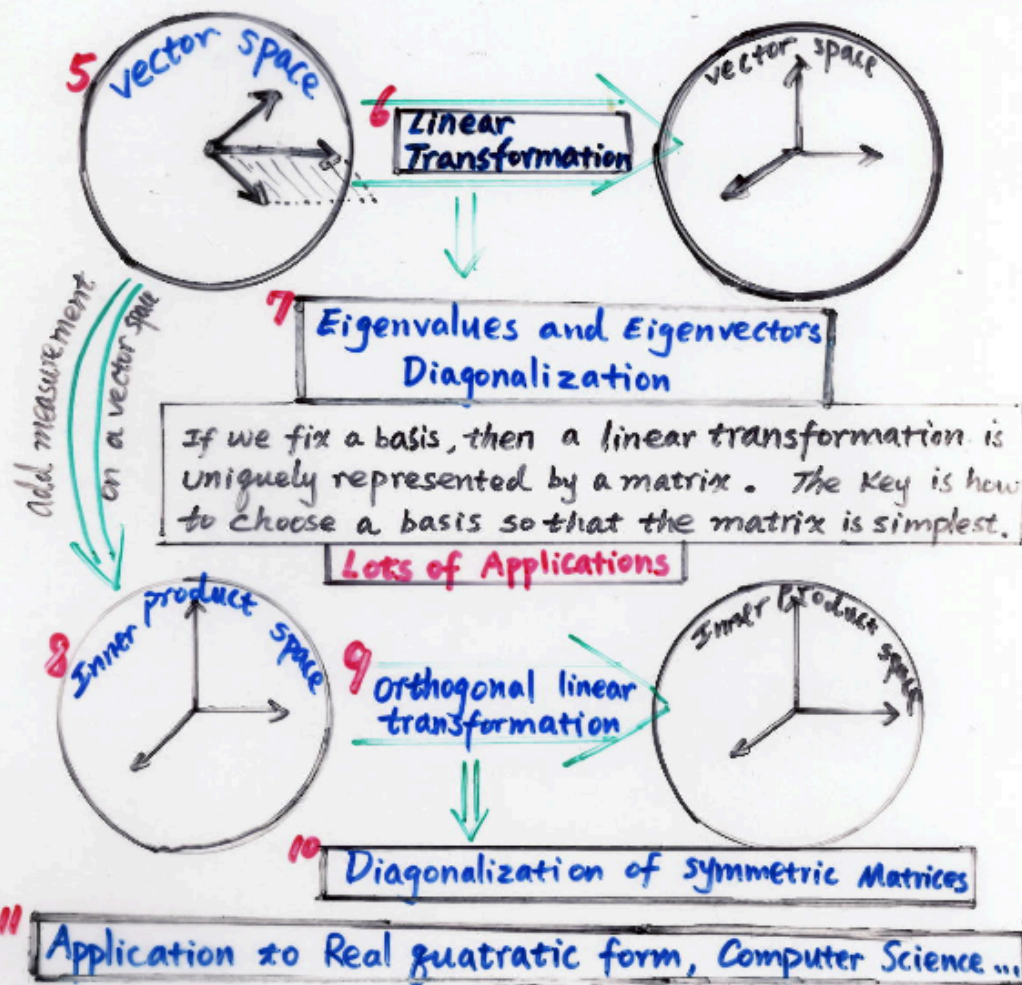 5 vector space
vector space
6 Linear
Transformation
7 Eigenvalues and Eigenvectors
Diagonalization
add measurement
on a vector space
If we fix a basis, then a linear transformation is
uniquely represented by a matrix. The Key is how
to choose a basis so that the matrix is simplest.
Lots of Applications
8 Inner product space
9 Orthogonal linear
transformation
Inner product space
10 Diagonalization of symmetric Matrices
11 Application to Real quatratic form, Computer Science...